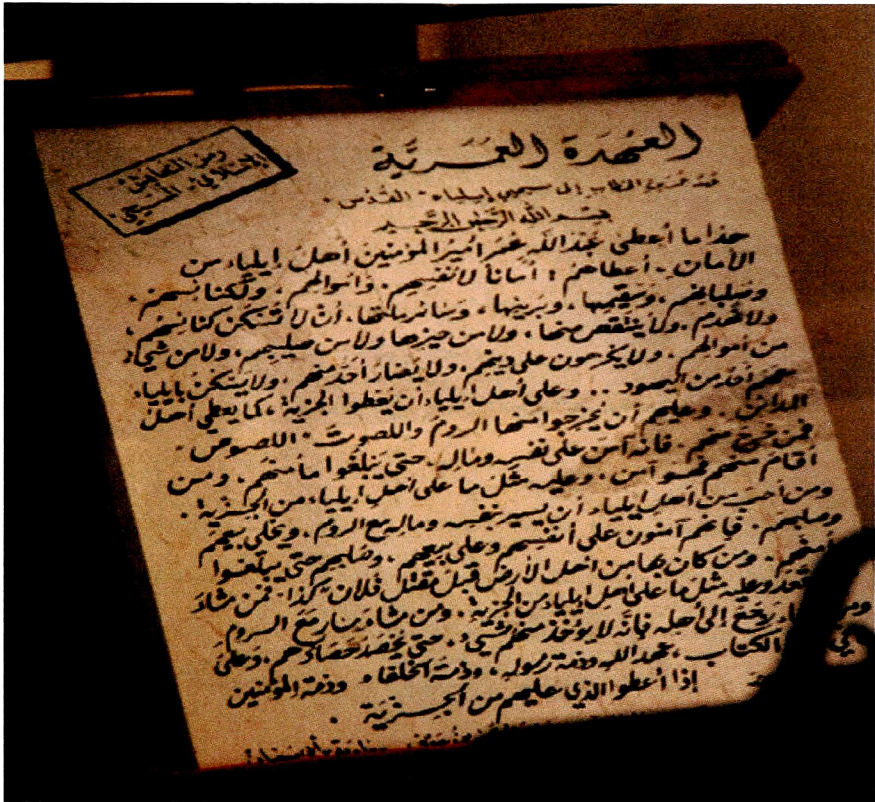 العهدة العمرية
رمز التعايش
الإسلامي - المسيحي
من عمر بن الخطاب إلى مسيحيي إيلياء - القدس -
بسم الله الرحمن الرحيم
هذا ما أعطى عبد الله عمر أمير المؤمنين أهل إيلياء من
الأمان - أعطاهم : أماناً لأنفسهم . وأموالهم ، ولكنائسهم ،
وصلبانهم ، وسقيمها ، وبريئها ، وسائر ملتها ، أن لا تسكن كنائسهم ،
ولا تهدم . ولا ينتقص منها ، ولا من حيزها ولا من صليبهم ، ولا من شيء
من أموالهم . ولا يكرهون على دينهم ، ولا يضار أحد منهم ، ولا يسكن بإيلياء
معهم أحد من اليهود .. وعلى أهل إيلياء أن يعطوا الجزية ، كما يعطي أهل
المدائن . وعليهم أن يخرجوا منها الروم واللصوت - اللصوص -
فمن خرج منهم . فإنه آمن على نفسه وماله ، حتى يبلغوا مأمنهم . ومن
أقام منهم فهو آمن . وعليه مثل ما على أهل إيلياء ، من الجزية .
ومن أحب من أهل إيلياء أن يسير بنفسه وماله مع الروم ، ويخلي بيعهم
وصلبهم . فإنهم آمنون على أنفسهم وعلى بيعهم . وصلبهم حتى يبلغوا
مأمنهم . ومن كان بها من أهل الأرض قبل مقتل فلان - كذا - فمن شاء
قعد وعليه مثل ما على أهل إيلياء من الجزية . ومن شاء سار مع الروم
ومن شاء رجع إلى أهله فإنه لا يؤخذ منهم شيء ، حتى يحصد حصادهم ، وعلى
في الكتاب ، عهد الله وذمة رسوله ، وذمة الخلفاء وذمة المؤمنين
إذا أعطوا الذي عليهم من الجزية .